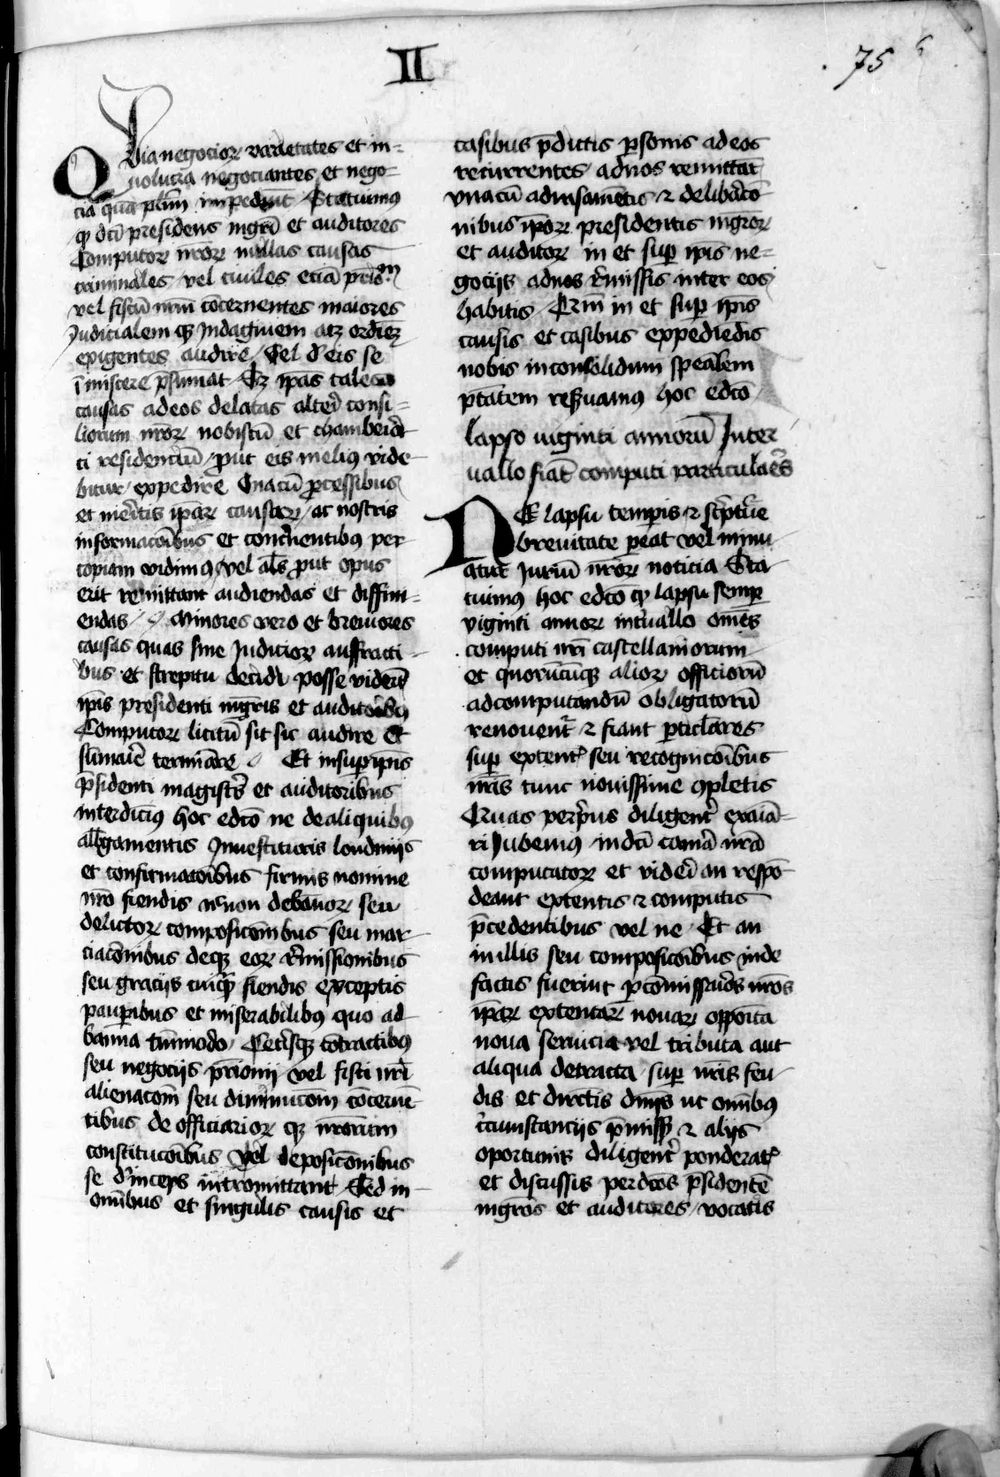 II
75
Quia negocior varietates et in-
volucra negociantes et nego-
cia qua plim impediut Statuimus
q dci presidens mgri et auditores
Computor nror nullas causas
criminales vel civiles ecia prio
vel fiscu nrm cocernentes maiores
Judicialem q Indaginem atq ordiez
exigentes audire Vel de eis se
imiscere psumat Sz ipas tales
causas ad eos delatas alteri consi-
liorum nror nobiscu et chamberiaci
ti residenciu put eis melius vide
bitur expedire Unacu pcessibus
et meritis ipar causar ac nostris
informacoibus et concludentibus per
copiam vidimus vel als put opus
erit remittant audiendas et diffini-
endas Minores vero et breviores
causas quas sine Judicior anffracti
bus et strepitu decidi posse viderit
ipis presidenti mgris et auditoribus
Computor licitu sit sic audire Et
sumarie terminare Et insuper ipis
psidenti magistris et auditoribus
interdicimus hoc edco ne de aliquibus
albgamentis Investituris laudimiis
et confirmacoibus firmis nomine
nro fiendis nnon debitor seu
delictor composicoibus seu mar-
ciacoibus deqz eor remissionibus
seu graciis cuiq fiendis exceptis
pauperibus et miserabilibus quo ad
banna tmmodo Ceterisq contractibus
seu negociis prionii vel fisci nri
alienacom seu diminucom cocerne
tibus de officiarior qz nrorum
constitucoibus vel deposicoibus
se deinceps intromittant Sed in
omibus et singulis causis et
casibus pdictis psonis ad eos
recurrentes ad nos remittat
vnacu advisametis & delibaco-
nibus ipor presidentis mgror
et auditor in et sup ipis ne-
gociis ad nos remissis inter eos
habitis Cum in et sup ipis
causis et casibus expediedis
nobis insolidum spealem
ptatem reservamus hoc edco
lapso viginti annoru Inter
vallo fiat computi particulares
NE lapsu temporis & scripture
brevitate pereat vel minu
atur Juriu nror noticia Sta
tuimus hoc edco q lapsu semp
viginti annor intervallo omes
computi nri castellaniorum
et quorucuq alior officioru
ad computandu obligatoru
renovent & fiant pticlares
sup extent seu recognicoibus
nris tunc novissime completis
Quas per prius diligenter exaia-
ri Jubemus in dca cama nra
computator et videri an respo
deant extentis & computis
pcedentibus vel ne Et an
in illis seu composicoibus inde
factis fuerint p comissarios nros
ipar extentar novar opposita
nova servicia vel tributa aut
aliqua detracta sup nris feu-
dis et directis dniis ut omibus
circunstanciis pmissis & aliis
oportunis diligenter ponderatis
et discussis per dcos psidente
mgros et auditores vocatis